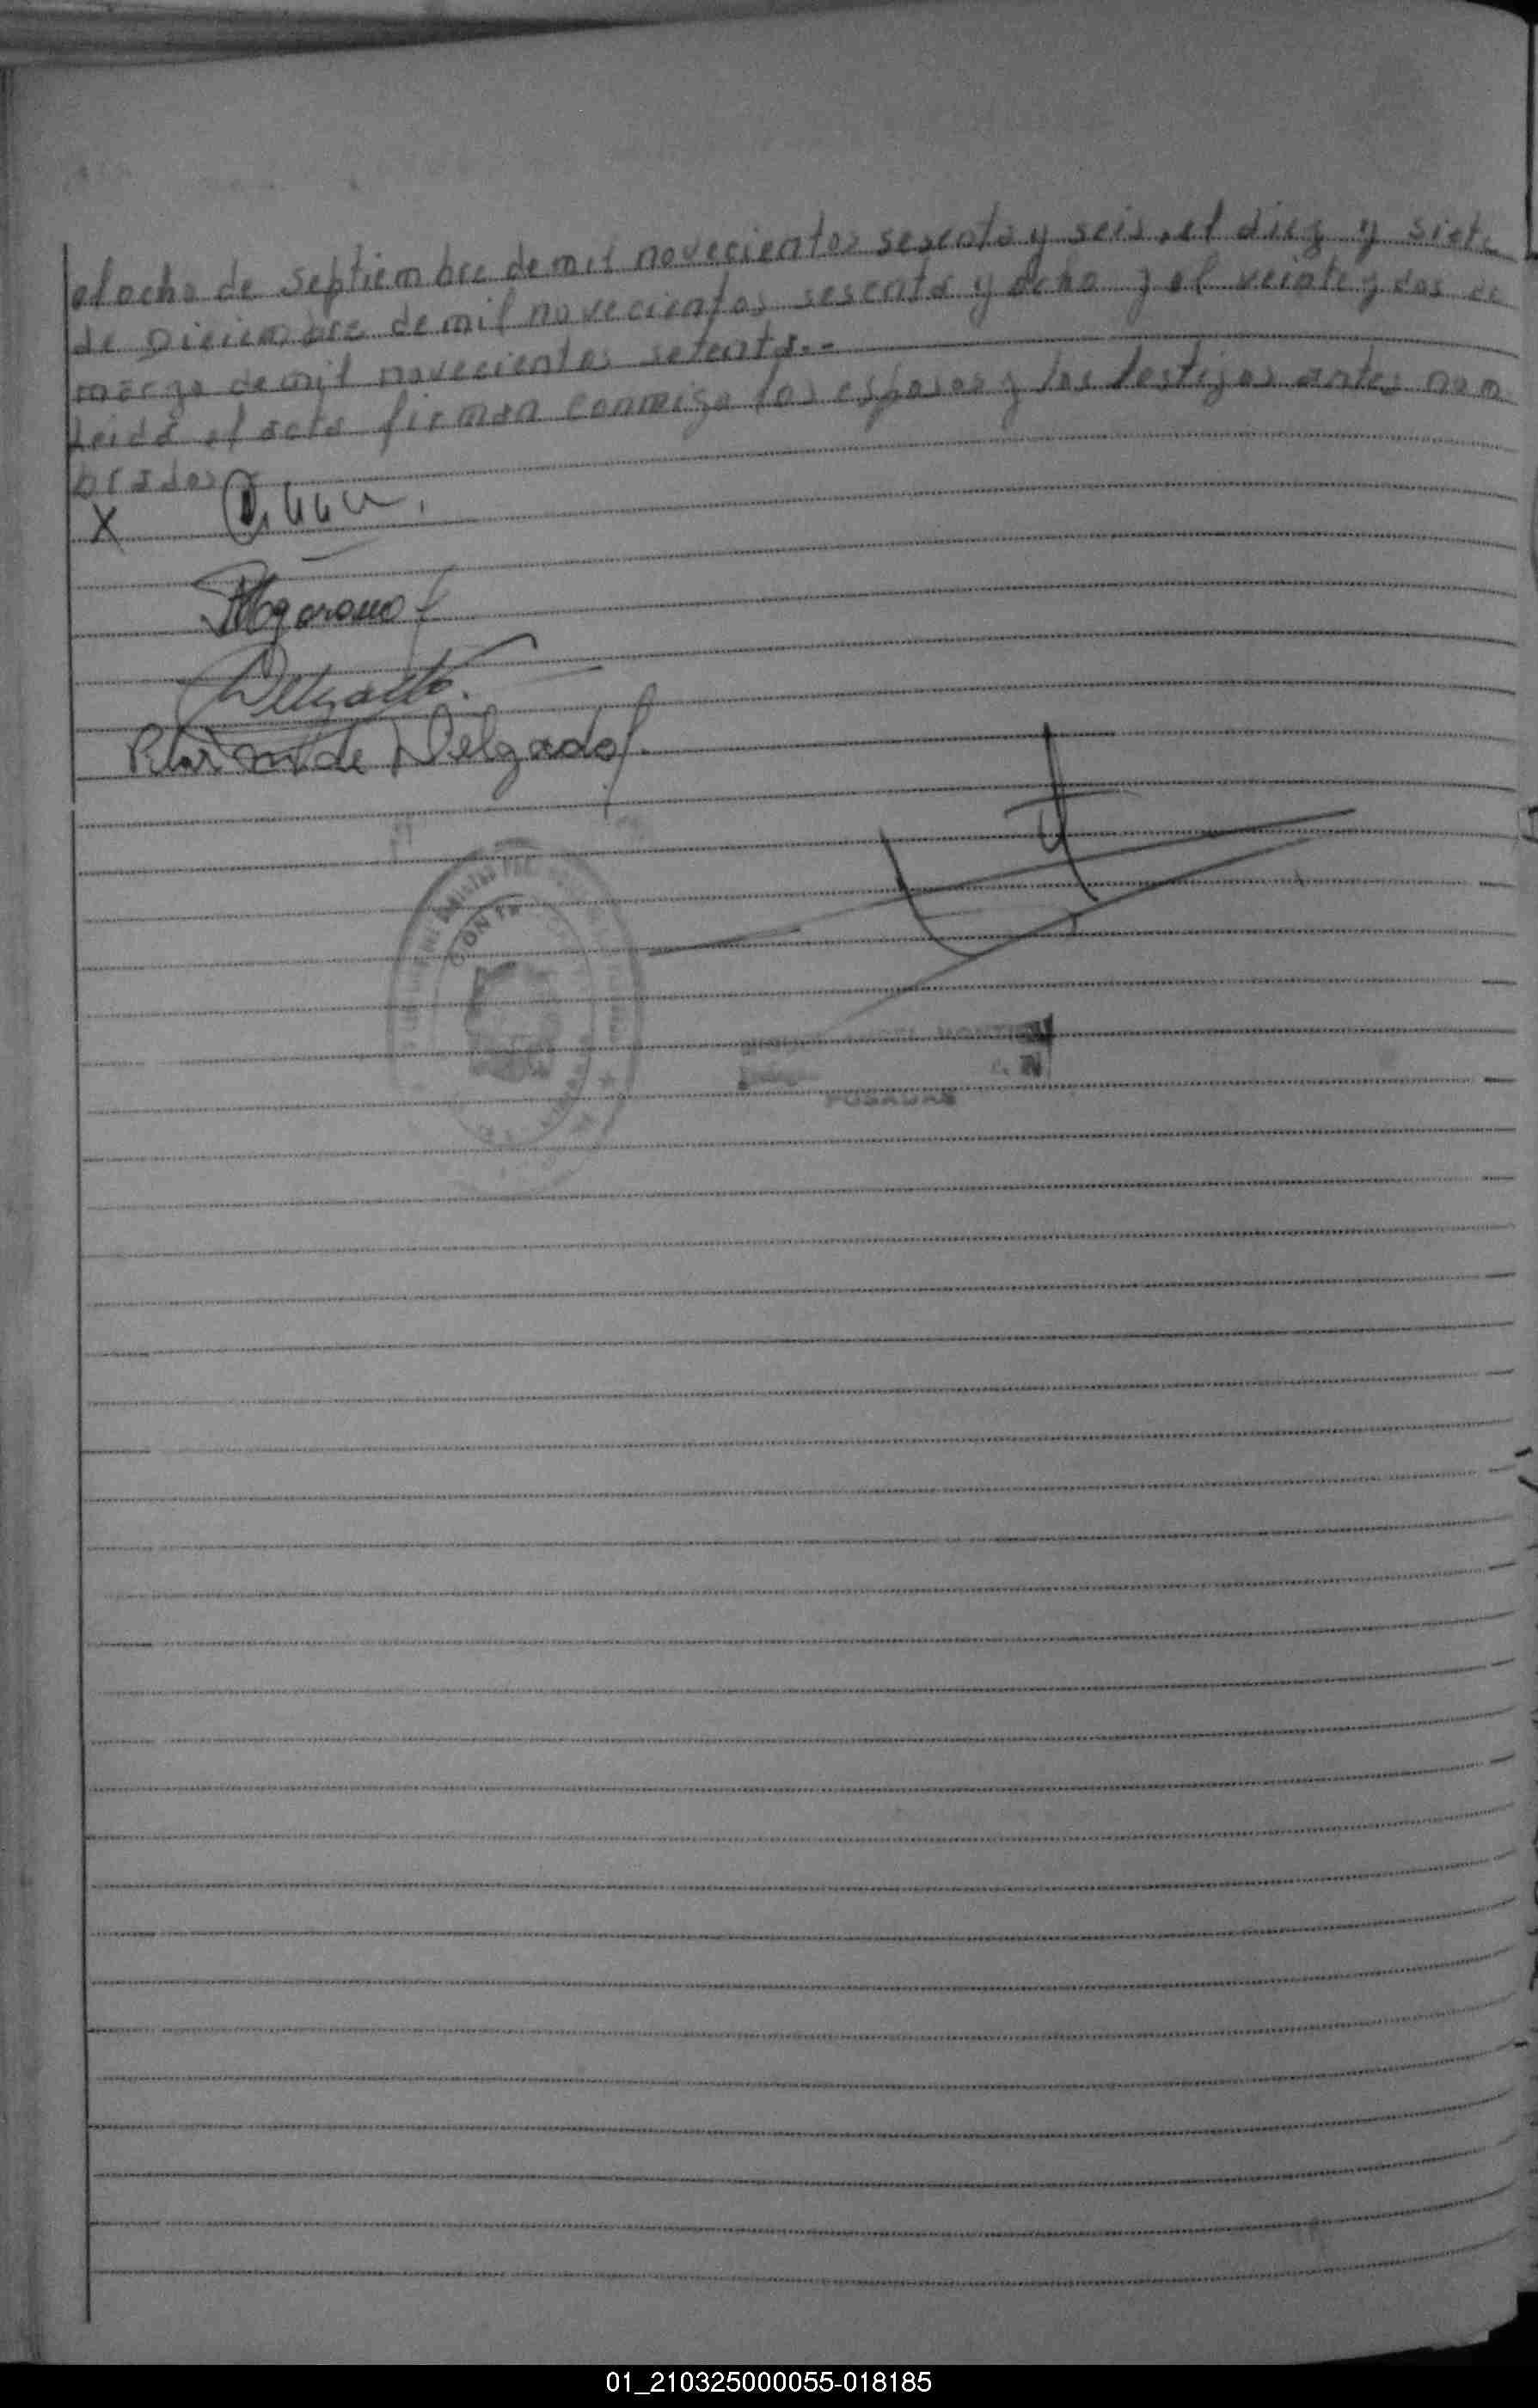 el ocho de Septiembre de mil novecientos sesenta y seis, el diez y siete
de Diciembre de mil novecientos sesenta y ocho y el veinte y dos de
marzo de mil novecientos setenta.-
Leida el acta firman conmigo los esposos y los testigos antes nom
brados
X
Delgado.
Pilar M de Delgado
MONTIEL
POSADAS
01_210325000055-018185